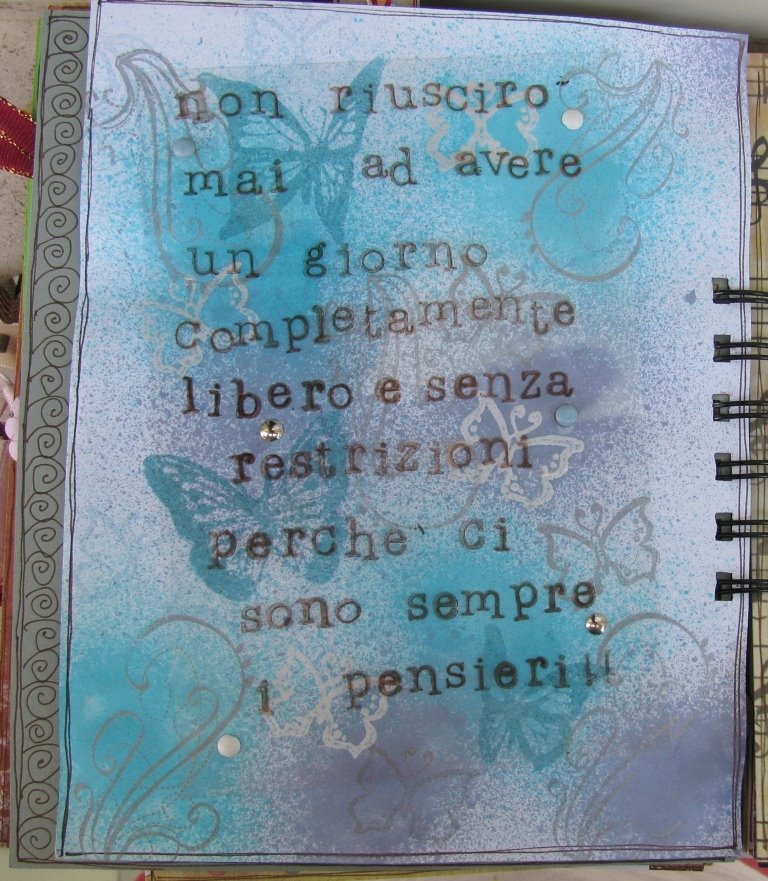 non riusciro`
mai ad avere
un giorno
completamente
libero e senza
restrizioni
perche` ci
sono sempre
i pensieri!!